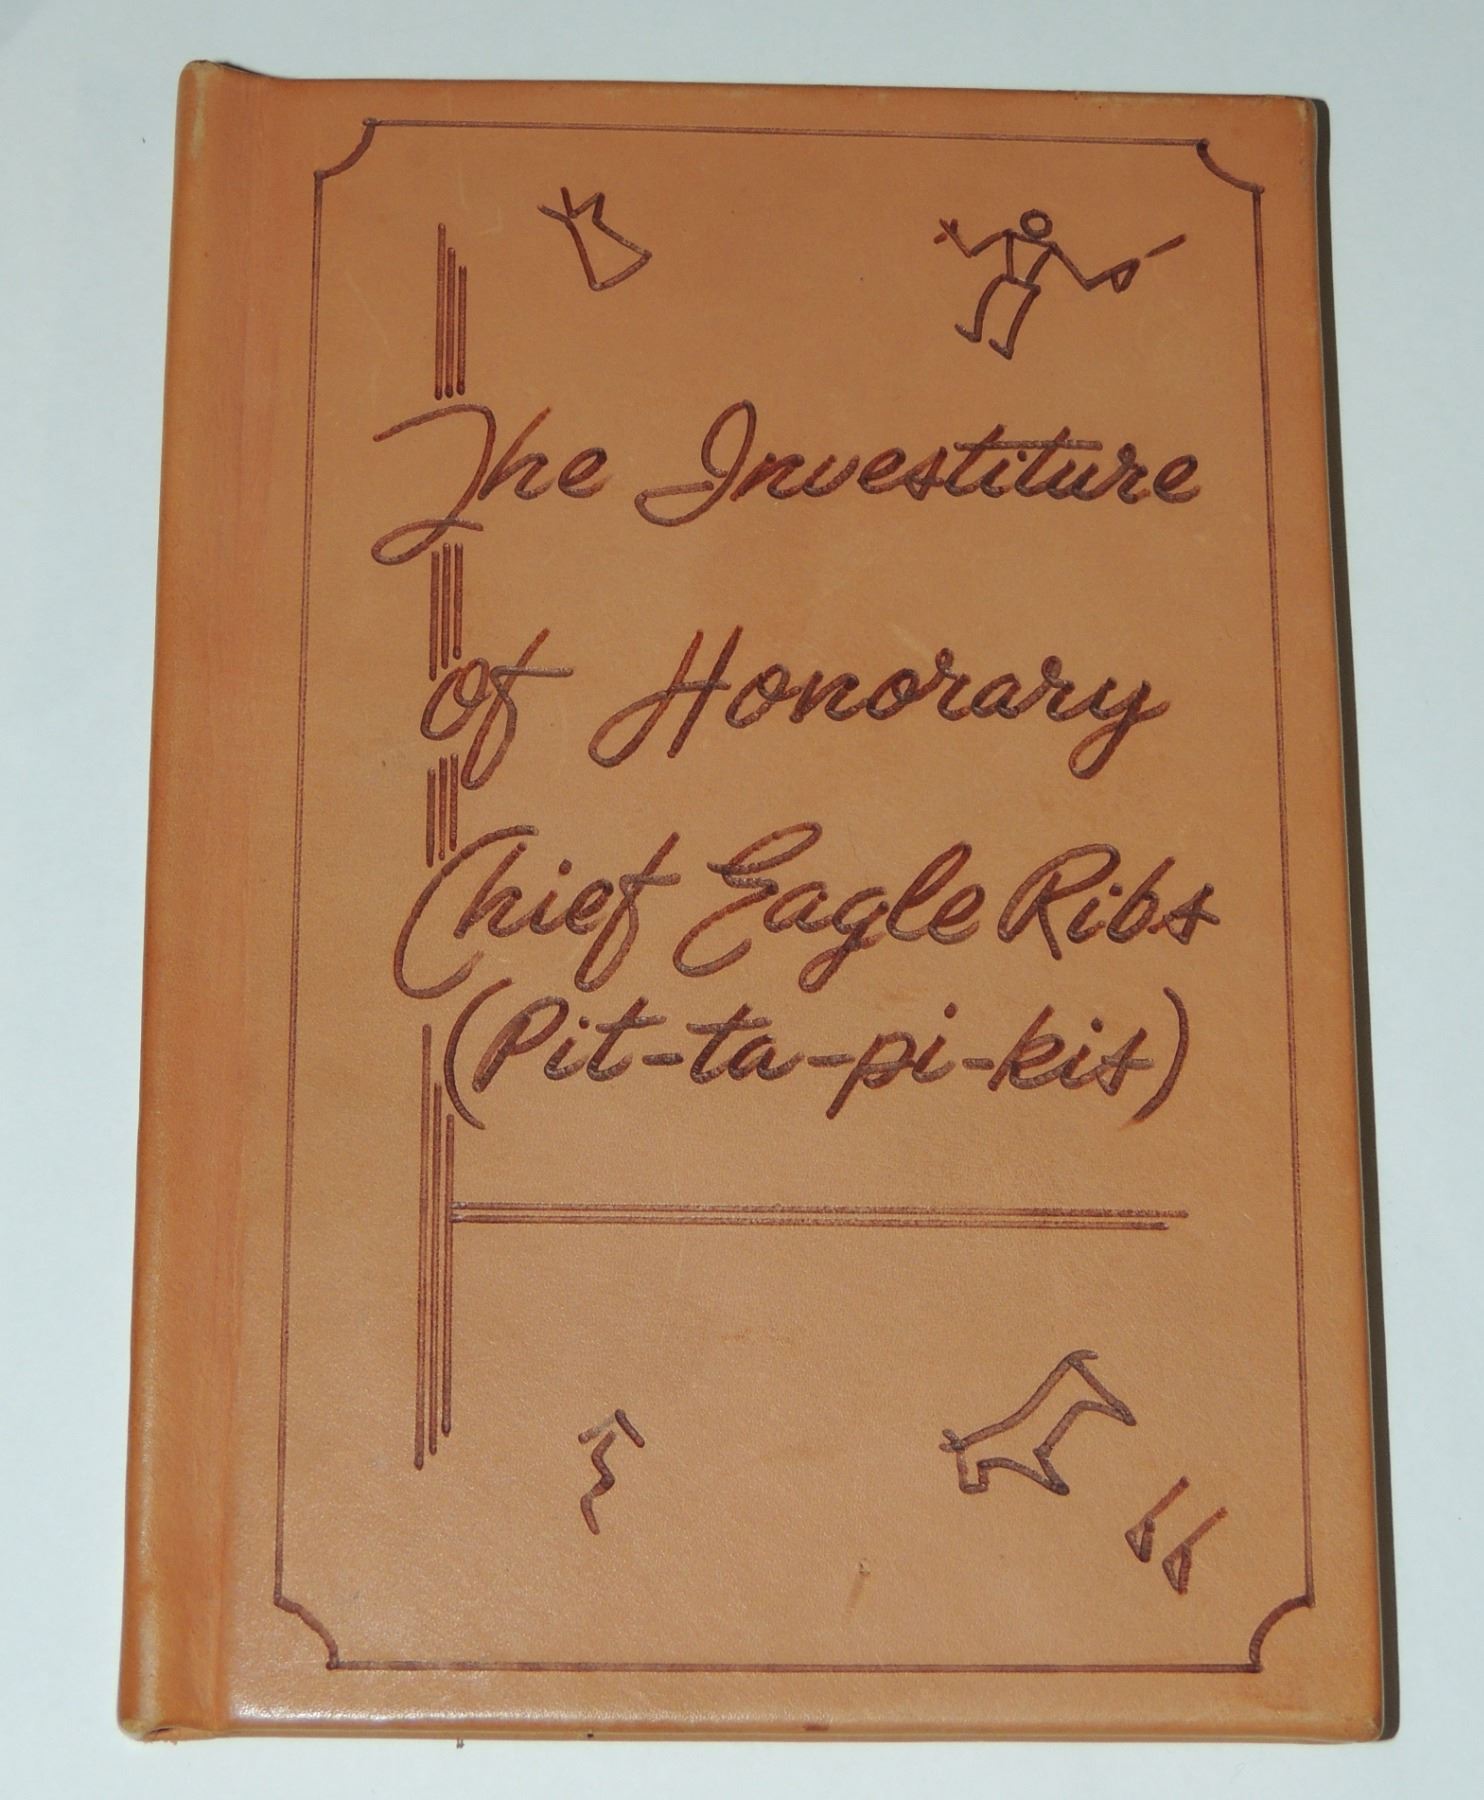 The Investiture
of Honorary
Chief Eagle Ribs
(Pit-ta-pi-kis)